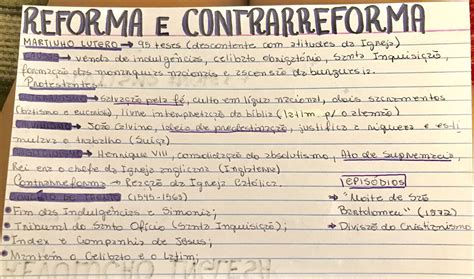 REFORMA E CONTRARREFORMA
MARTINHO LUTERO → 95 teses (descontente com atitudes da Igreja)
→ venda de indulgências, celibato obrigatório, Santa Inquisição,
formação das monarquias nacionais e ascensão da burguesia.
Protestantes
→ salvação pela fé, culto em língua nacional, dois sacramentos
(batismo e eucaristia), livre interpretação da bíblia (latim p/ o alemão)
→ João Calvino, ideia de predestinação, justifica a riqueza e esti
mulava o trabalho (Suíça)
→ Henrique VIII, consolidação do absolutismo, Ato de Supremacia,
Rei era o chefe da Igreja anglicana (Inglaterra)
Contrarreforma → Reação da Igreja Católica.
(1545-1563)
• Fim das Indulgências e Simonia;
• Tribunal do Santo Ofício (Santa Inquisição);
• Index e Companhia de Jesus;
• Mantém o Celibato e o Latim;
EPISÓDIOS
→ "Noite de São
Bartolomeu" (1572)
→ Divisão do Cristianismo